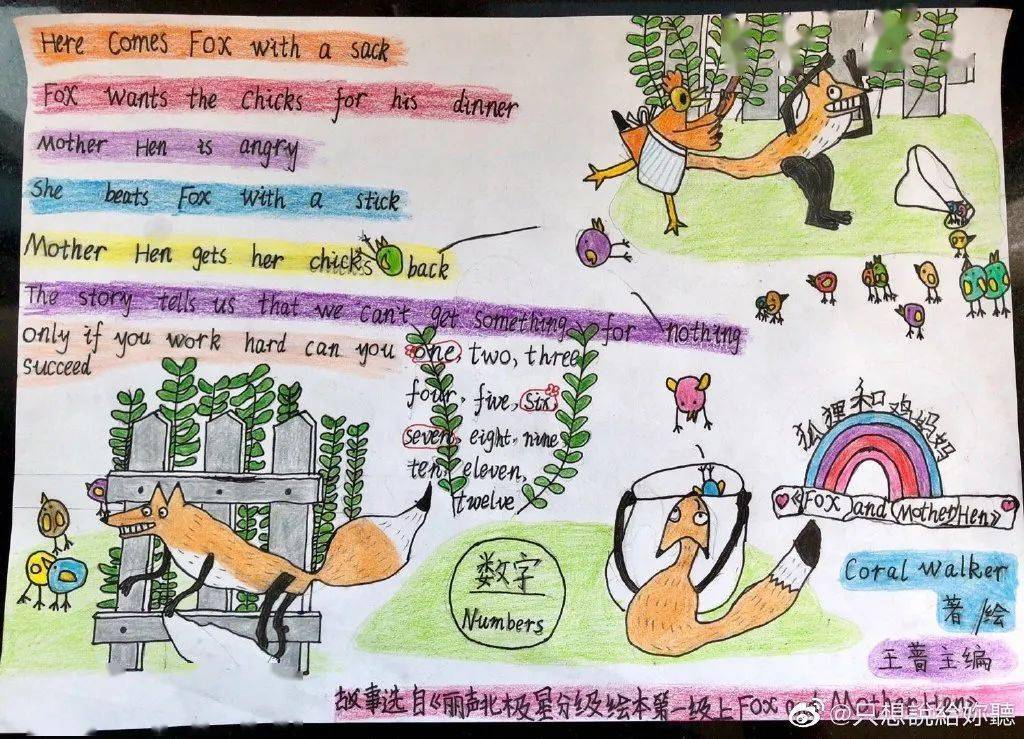 Here Comes Fox with a sack
Fox wants the chicks for his dinner
Mother Hen is angry
She beats Fox with a stick
Mother Hen gets her chicks back
The story tells us that we can't get something for nothing
only if you work hard can you succeed
one, two, three
four, five, six,
seven, eight, nine
ten, eleven,
twelve
数字
Numbers
狐狸和鸡妈妈
《Fox and Mother Hen》
Coral Walker
著/绘
王蔷主编
故事选自《丽声北极星分级绘本第一级上Fox and Mother Hen》
@只想說給妳聽